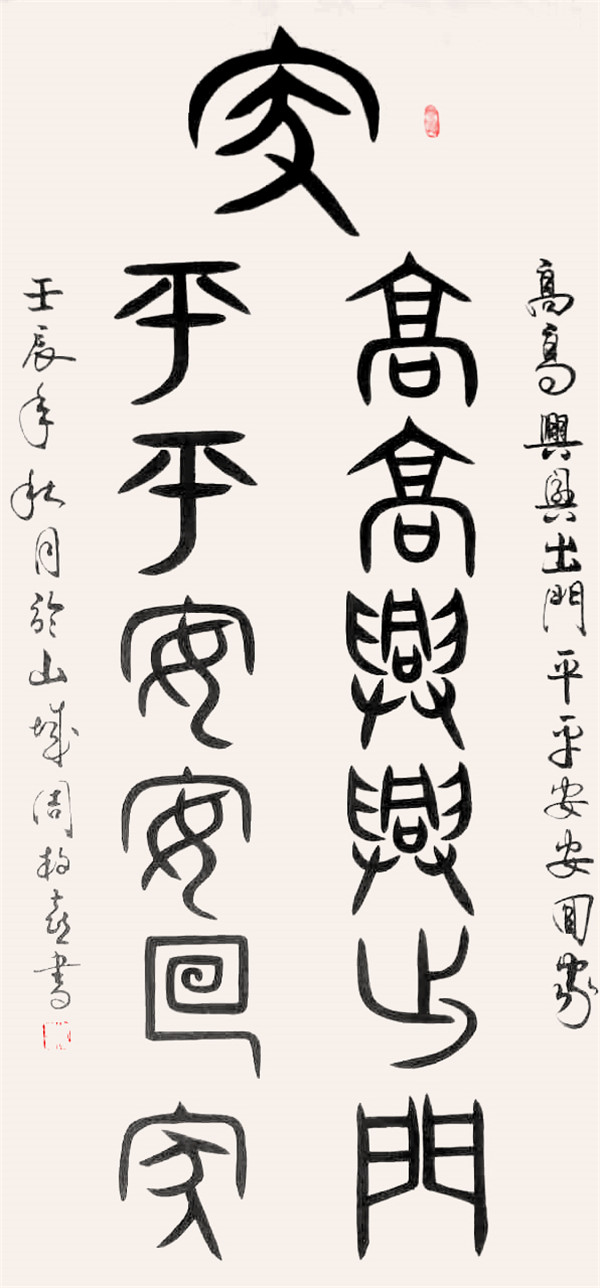 家
高高興興出門平平安安回家
高高興興出門
平平安安回家
壬辰年秋月於山城周書